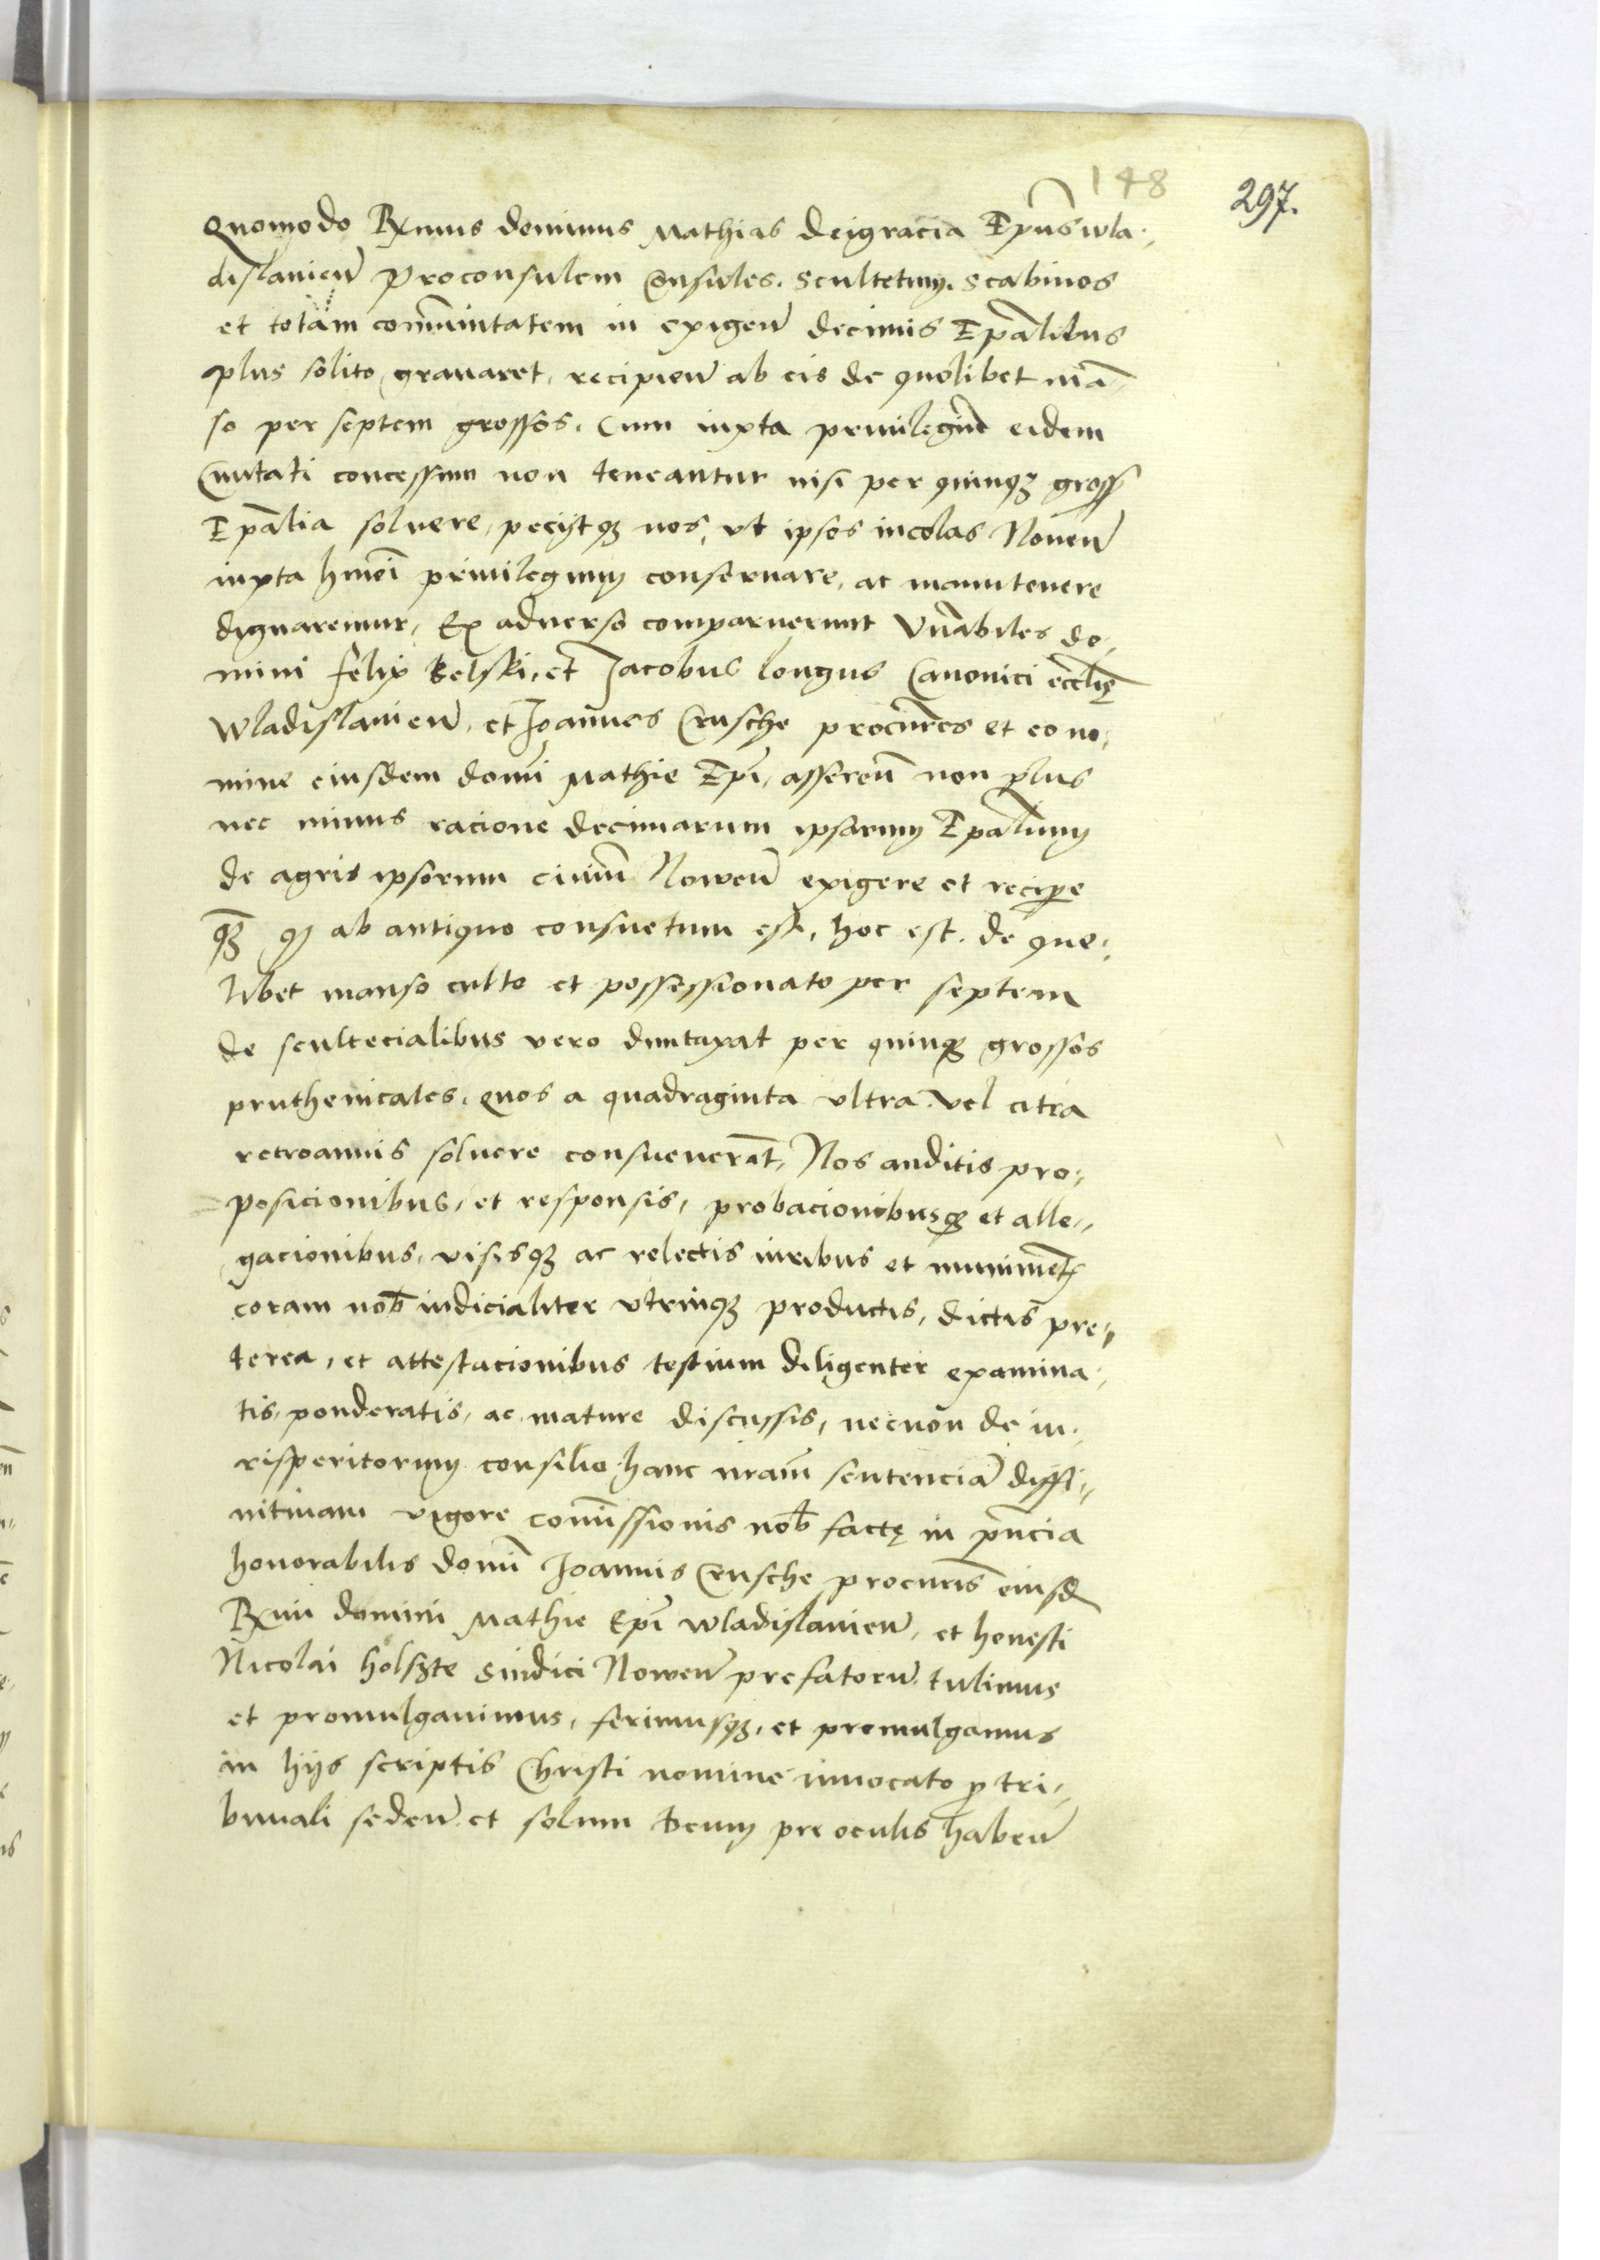 148
297.
Quomodo Rx̃mus dominus Mathias dei gracia Ep̃us wla.,
dislauieñ Proconsulem Consules. Scultetum. Scabinos
et totam com̃unitatem in exigeñ decimis Ep̃alibus
plus solito grauaret, recipieñ ab eis de quolibet mã,
so per septem grossos. Cum iuxta priuilegiũ eidem
Ciuitati concessum non teneantur nisi per quinqʒ gross̃
Ep̃alia soluere, peciitqʒ nos, vt ipsos incolas Noueñ
iuxta hm̃oi priuilegium conseruare, ac manutenere
dignaremur, Ex aduerso comparuerunt Vñabiles do,
mini felix Belski, et Jacobus longus Canonici eccl̃ie
wladislauieñ, et Joannes Crusche procur̃es et eo no,
mine eiusdem domĩ Mathie Ep̃i, assereñ non plus
nec minus racione decimarum ipsarum Ep̃alium
de agris ipsorum ciuiũ Noweñ exigere et recip̱e
qʒ̃ qđ ab antiquo consuetum est, hoc est. de quo,
libet manso culto et possessionato per septem
de scultecialibus vero duntaxat per quinqʒ grossos
pruthenicales, quos a quadraginta vltra vel citra
retroannis soluere consueuerãt, Nos auditis pro,
posicionibus, et responsis, probacionibusqʒ et alle,,
gacionibus, visisqʒ ac relectis iuribus et muniment̃
coram nob̃ iudicialiter vtrinqʒ productis, dictis pre,,
terea, et attestacionibus testium diligenter examina,
tis, ponderatis, ac mature discussis, necnon de iu,
risperitorum consilio hanc nr̃am sentenciã diffi,,
nitiuam vigore com̃issionis nob̃ factę in p̃ncia
honorabilis domĩ Joannis Crusche procur̃is eiusđ
Rx̃mi domini Mathie Ep̃i wladislauieñ, et honesti
Nicolai holszte Sindici Noweñ prefatorũ tulimus
et promulgauimus, ferimusqʒ, et promulgamus
in hijs scriptis Christi nomine inuocato p̱ tri,,
bunali sedeñ et solum deum pre oculis habeñ